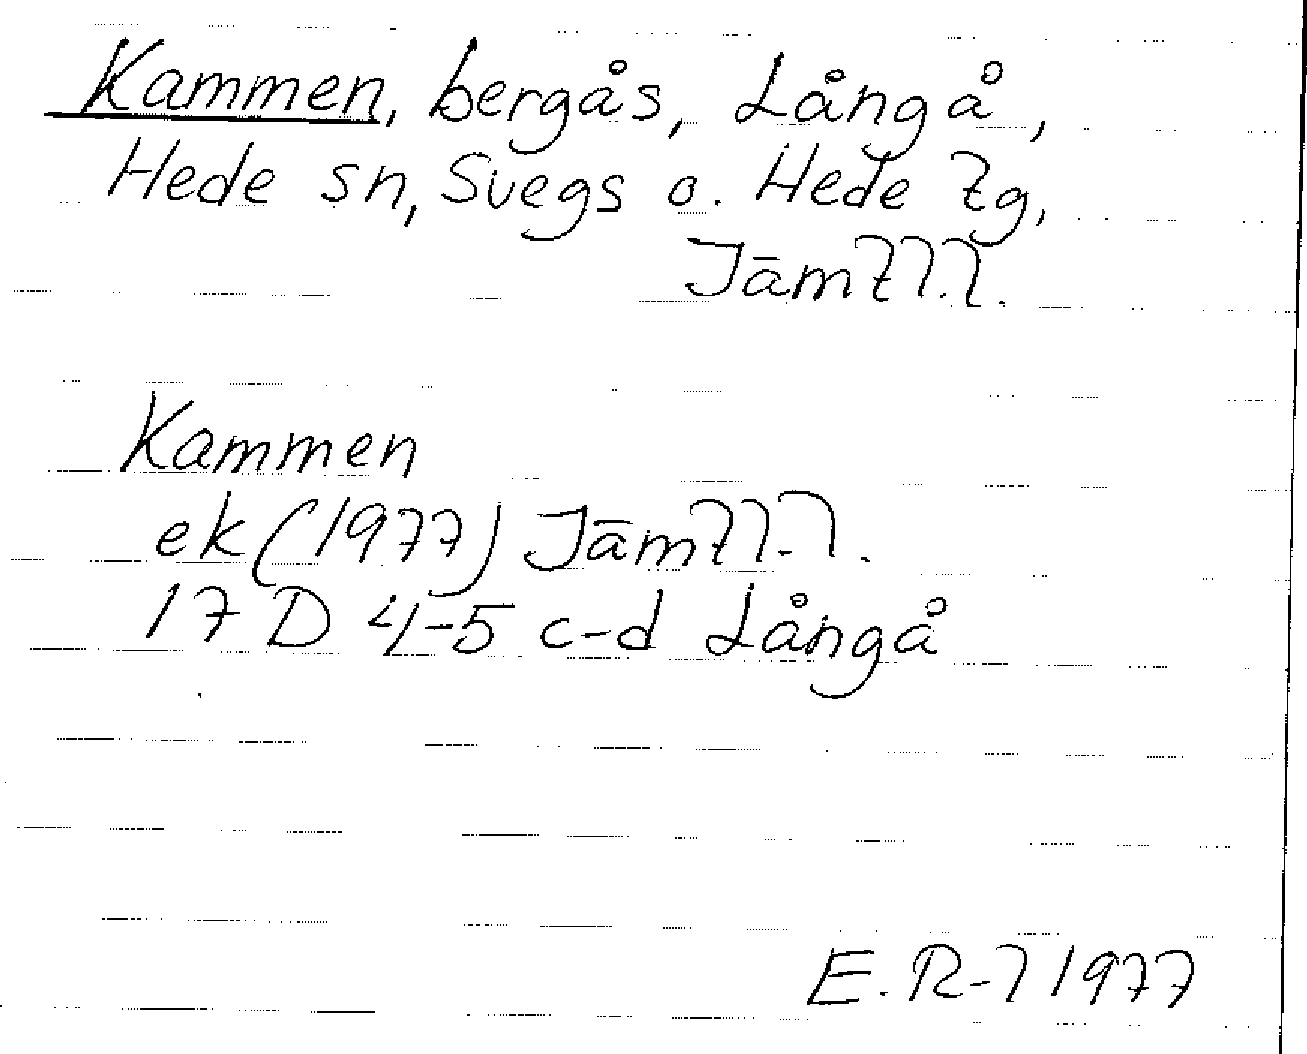 Kammen, bergås, Långå,
Hede sn, Svegs o. Hede tg,
Jämtl.l.
Kammen
ek (1977) Jämtl.l.
17 D 4-5 c-d Långå
E. R-l 1977